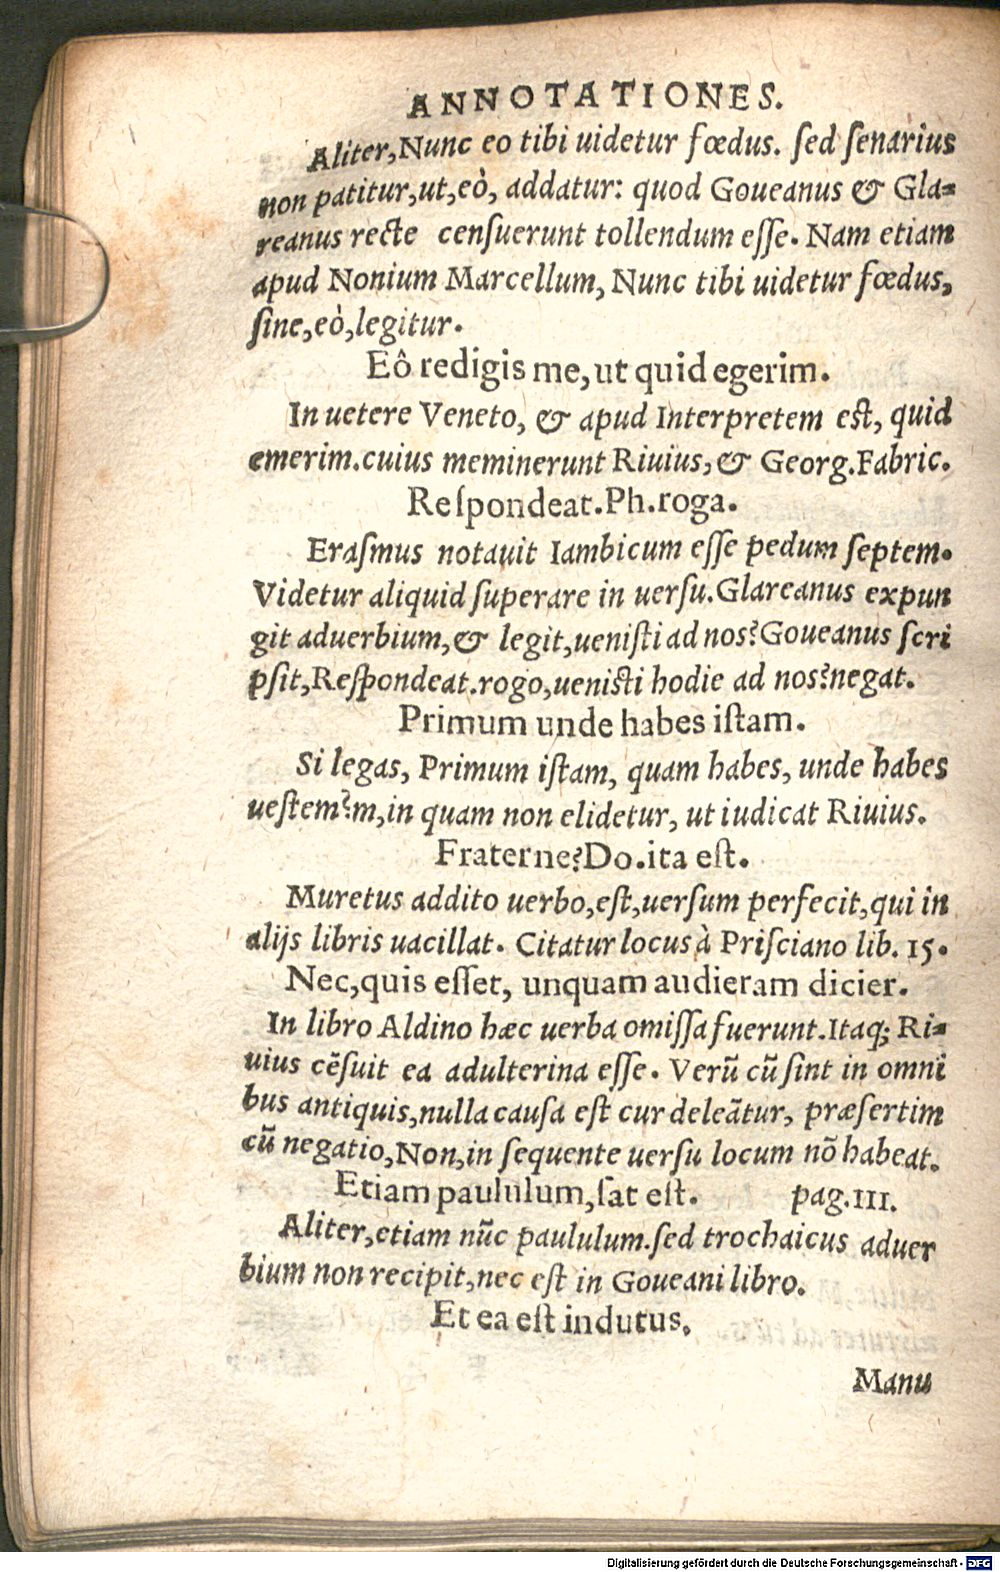 ANNOTATIONES.
Aliter, Nunc eo tibi uidetur fœdus. sed ſenarius
non patitur, ut, eò, addatur: quod Goueanus & Gla-
reanus recte cenſuerunt tollendum eſſe. Nam etiam
apud Nonium Marcellum, Nunc tibi uidetur fœdus,
ſine, eò, legitur.
Eô redigis me, ut quid egerim.
In uetere Veneto, & apud Interpretem eſt, quid
emerim. cuius meminerunt Riuius, & Georg. Fabric.
Reſpondeat. Ph. roga.
Eraſmus notauit Iambicum eſſe pedum ſeptem.
Videtur aliquid ſuperare in uerſu. Glareanus expun
git aduerbium, & legit, ueniſti ad nos? Goueanus ſcri
pſit, Reſpondeat. rogo, ueniſti hodie ad nos? negat.
Primum unde habes iſtam.
Si legas, Primum iſtam, quam habes, unde habes
ueſtem? m, in quam non elidetur, ut iudicat Riuius.
Fraterne? Do. ita eſt.
Muretus addito uerbo, eſt, uerſum perfecit, qui in
alijs libris uacillat. Citatur locus à Priſciano lib. 15.
Nec, quis eſſet, unquam audieram dicier.
In libro Aldino hæc uerba omiſſa fuerunt. Itaq; Ri-
uius cēſuit ea adulterina eſſe. Verū cū ſint in omni
bus antiquis, nulla cauſa eſt cur deleātur, præſertim
cū negatio, Non, in ſequente uerſu locum nō habeat.
Etiam paululum, ſat eſt. pag. 111.
Aliter, etiam nūc paululum. ſed trochaicus aduer
bium non recipit, nec eſt in Goueani libro.
Et ea eſt indutus.
Manu
Digitalisierung gefördert durch die Deutsche Forschungsgemeinschaft - DFG